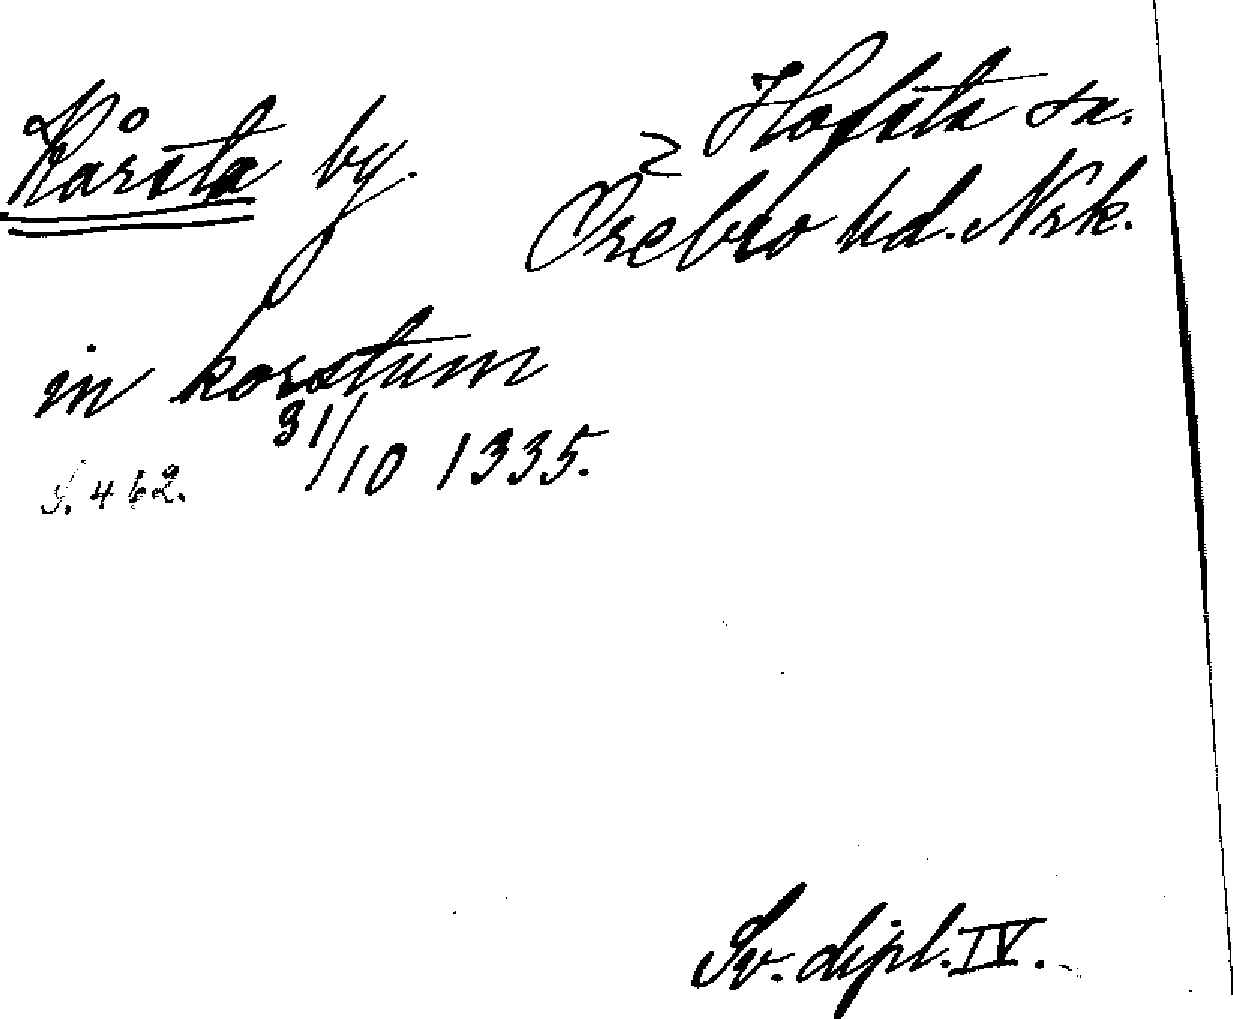 Kårsta by.
Hofsta sn.
Örebro hd. Nrk.
in korstum
31/10 1335.
S. 462.
Sv. dipl. IV.